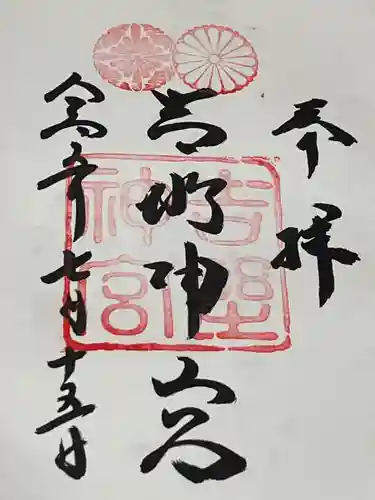 奉拝
吉野神宮
令和元年七月十五日
吉野神宮